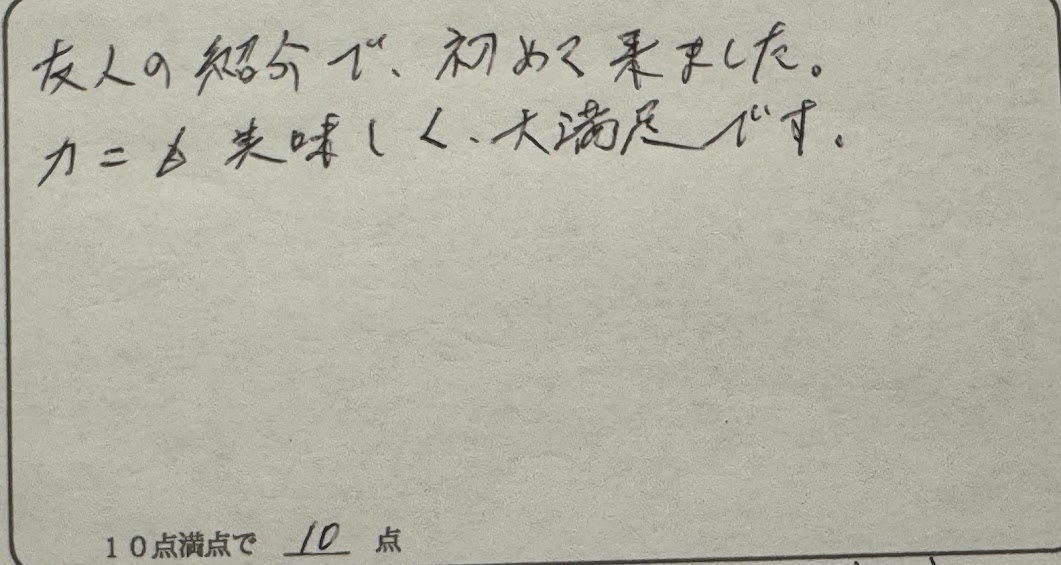 友人の紹介で、初めて来ました。
カニも美味しく、大満足です。
10点満点で 10 点